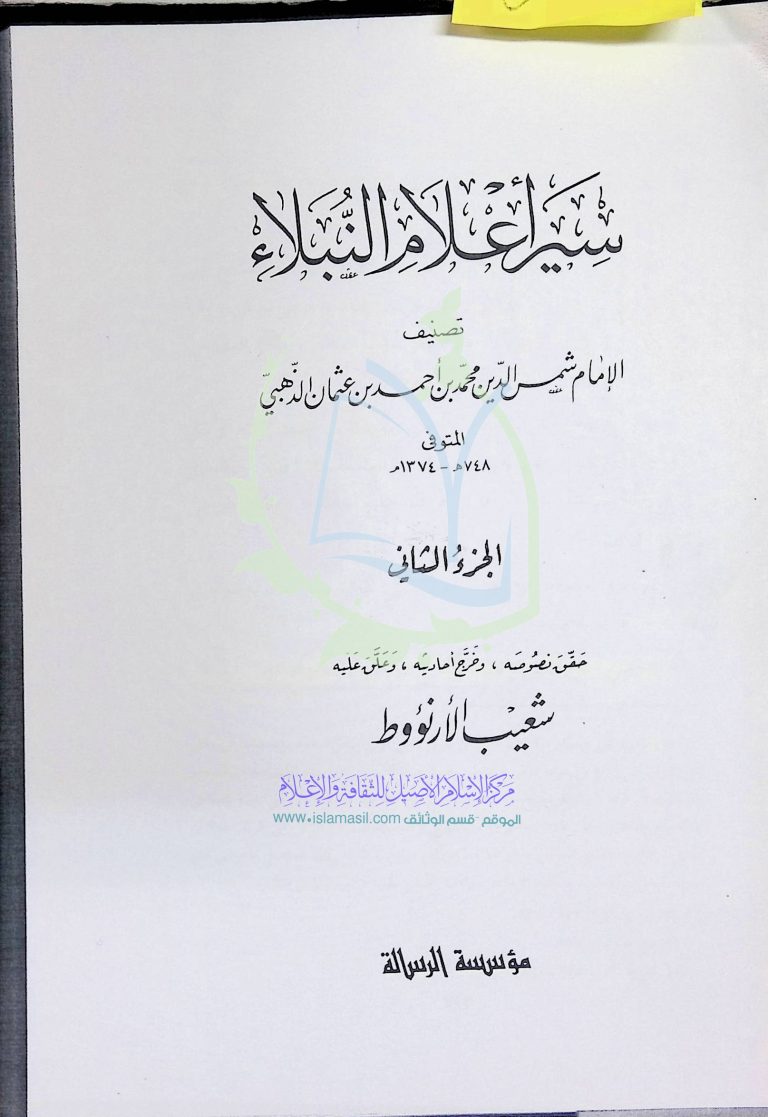 سِيَر أَعْلَامِ النُّبَلَاءِ
تصنيف
الإمام شمس الدّين محمّد بن أحمد بن عثمان الذّهبيّ
المتوفى
٧٤٨هـ - ١٣٧٤م
الجزءُ الثاني
حَقّق نصُوصَه ، وخَرَّج أحاديثه ، وَعَلّق عَليه
شعَيب الأرنؤوط
مركز الإسلام الأصيل للثقافة والإعلام
الموقع - قسم الوثائق www.islamasil.com
مؤسسة الرسالة